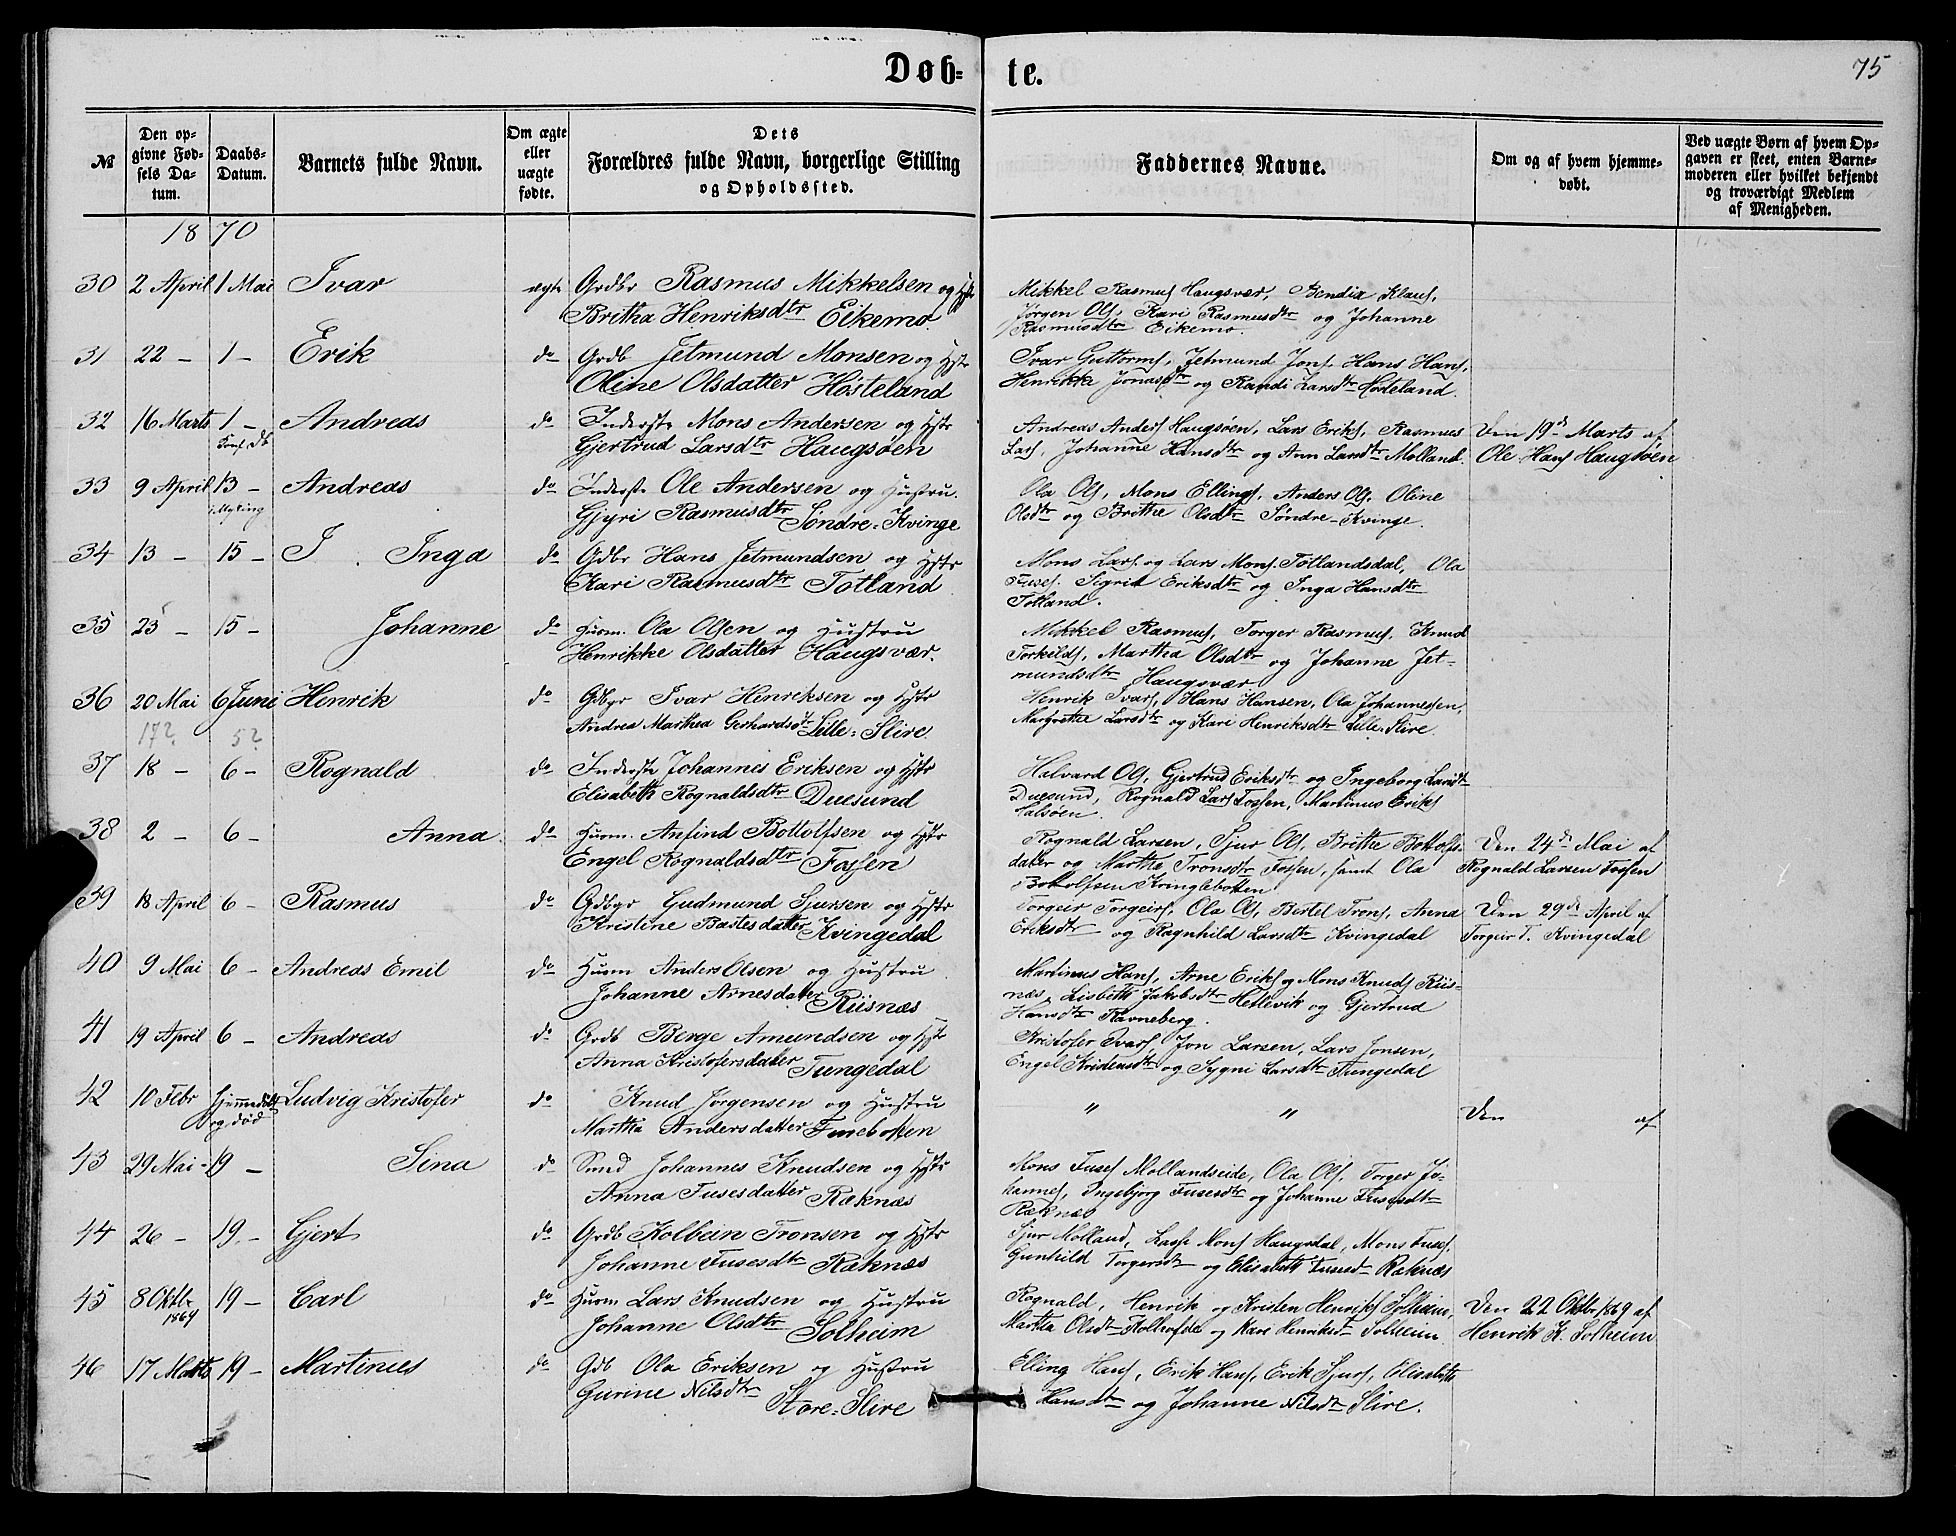 Døb- te.
75
№
Den opgivne Fødsels Datum.
Daabs-Datum.
Barnets fulde Navn.
Om ægte eller uægte fødte.
Dets Forældres fulde Navn, borgerlige Stilling og Opholdssted.
Faddernes Navne.
Om og af hvem hjemmedøbt.
Ved uægte Børn af hvem Opgaven er skeet, enten Barnemoderen eller hvilket bekjendt og troværdigt Medlem af Menigheden.
1870
30 2 April 1 Mai Ivar ægte Grdbr Rasmus Mikkelsen og Hstr
Britha Henriksdtr Eikemo.
Mikkel Rasmus Haugsvær, Bendix Klaus,
Jørgen Ols, Kari Rasmusdtr og Johanne
Rasmusdtr Eikemo.
31 22 – 1 – Erik do Grdb Jetmund Monsen og Hstr
Oline Olsdatter Høsteland
Ivar Guttorms, Jetmund Jons, Hans Hans,
Henrikke Jonasdtr og Randi Larsdtr Høsteland.
32 16 Marts 1 – Andreas do Inderste Mons Andersen og Hstr
Gjertrud Larsdtr Haugsøen
Andreas Anders Haugsøen, Lars Eriks, Rasmus
Lars, Johanne Hansdtr og Ann Larsdtr Molland.
Den 19de Marts af
Ole Hans Haugsøen
33 9 April 13 – Andreas do Inderste Ole Andersen og Hustru.
i Myking
Gjyri Rasmusdtr Søndre-Kvinge
Ola Ols, Mons Ellings, Anders Ols, Oline
Olsdtr og Brithe Olsdtr Søndre-Kvinge.
34 13 – 15 – I Inga do Gdbr Hans Jetmundsen og Hstr
Kari Rasmusdtr Totland
Mons Lars og Lars Mons Totlandsdal, Ola
Fuses. Sigrid Eriksdtr og Inga Hansdtr
Totland.
35 23 – 15 – Johanne do Husm. Ola Olsen og Hustru
Henrikke Olsdatter Haugsvær.
Mikkel Rasmus, Torger Rasmus, Knud
Torkilds, Martha Olsdtr og Johanne Jet-
mundsdtr Haugsvær
36 20 Mai 6 Juni Henrik do Gdbgr Ivar Henriksen og Hstr
17? 5?
Andrea Marthea Gerhardsdtr Lille-Slire.
Henrik Ivars, Hans Hansen, Ola Johannessen,
Margrethe Larsdtr og Kari Henriksdtr Lille-Slire.
37 18 – 6 – Rognald do Inderste Johannes Eriksen og Hstr
Elisabeth Rognaldsdtr Duesund
Halvard Ols, Gjertrud Eriksdtr og Ingeborg Larsdtr
Duesund, Rognald Lars Fossen, Martinus Eriks
38 2 – 6 – Anna do Husm. Anfind Bottolfsen og Hstr
Engel Rognaldsdtr Fossen
Rognald Larsen, Sjur Ols, Brithe Bottolfs-
datter og Marthe Tronsdtr Fossen, samt Ola
Bottolfsen Kringlebotten
Den 24de Mai af
Rognald Larsen Fossen
39 18 April 6 – Rasmus do Gdbgr Gudmund Sjursen og Hstr
Kristine Bastesdatter Kvingedal
Torgeir Torgeirs, Ola Ols, Bertel Trons, Anna
Eriksdtr og Ragnhild Larsdtr Kvingedal
Den 29de April af
Torgeir T. Kvingedal
40 9 Mai 6 – Andreas Emil do Husm Anders Olsen og Hustru
Johanne Arnesdatter Riisnæs
Martinus Hans, Arne Eriks og Mons Knuds Riis-
næs, Lisbeth Jakobsdtr Hellevik og Gjertrud
Hansdtr Ravneberg.
41 19 April 6 – Andreas do Grdb Berge Amundsen og Hstr
Anna Kristofersdatter Tungedal
Kristofer Ivars, Jon Larsen, Lars Jonsen,
Engel og Sygni Larsdtr Tungedal
42 10 Febr hjemmedøbt Ludvig Kristofer do Knud Jørgensen og Hustru
og død
Martha Andersdatter
" "
Den af
43 29 Mai 19 – Sina do Smed Johannes Knudsen og Hstr
Anna Fusesdatter Ræknæs
Mons Fuses Mollandseide, Ola Ols, Torger Jo-
hannes, Ingebjørg Fusesdtr og Johanne Fusesdtr
Ræknæs
44 26 – 19 – Gjert do Grdb Kolbein Tronsen og Hstr
Johanne Fusesdtr Ræknæs
Sjur Molland, Lasse Mons Haugsdal, Mons Fuses,
Gunhild Torgersdtr og Elisabeth Fusesd Ræknæs
45 8 Oktbr 19 – Carl do Husm Lars Knudsen og Hustru
1869
Johanne Olsdtr Solheim
Rognald, Henrik og Kristen Henriks Solheim,
Martha Olsdtr og Kari Henriksdtr Solheim
Den 22 Oktbr 1869 af
Henrik K. Solheim
46 17 Marts 19 – Martinus do Gdb Ola Eriksen og Hustru
Gurine Nilsdtr Store-Slire
Elling Hans, Erik Hans, Erik Sjurs, Elisabeth
Hansdtr og Johanne Nilsdtr Slire.